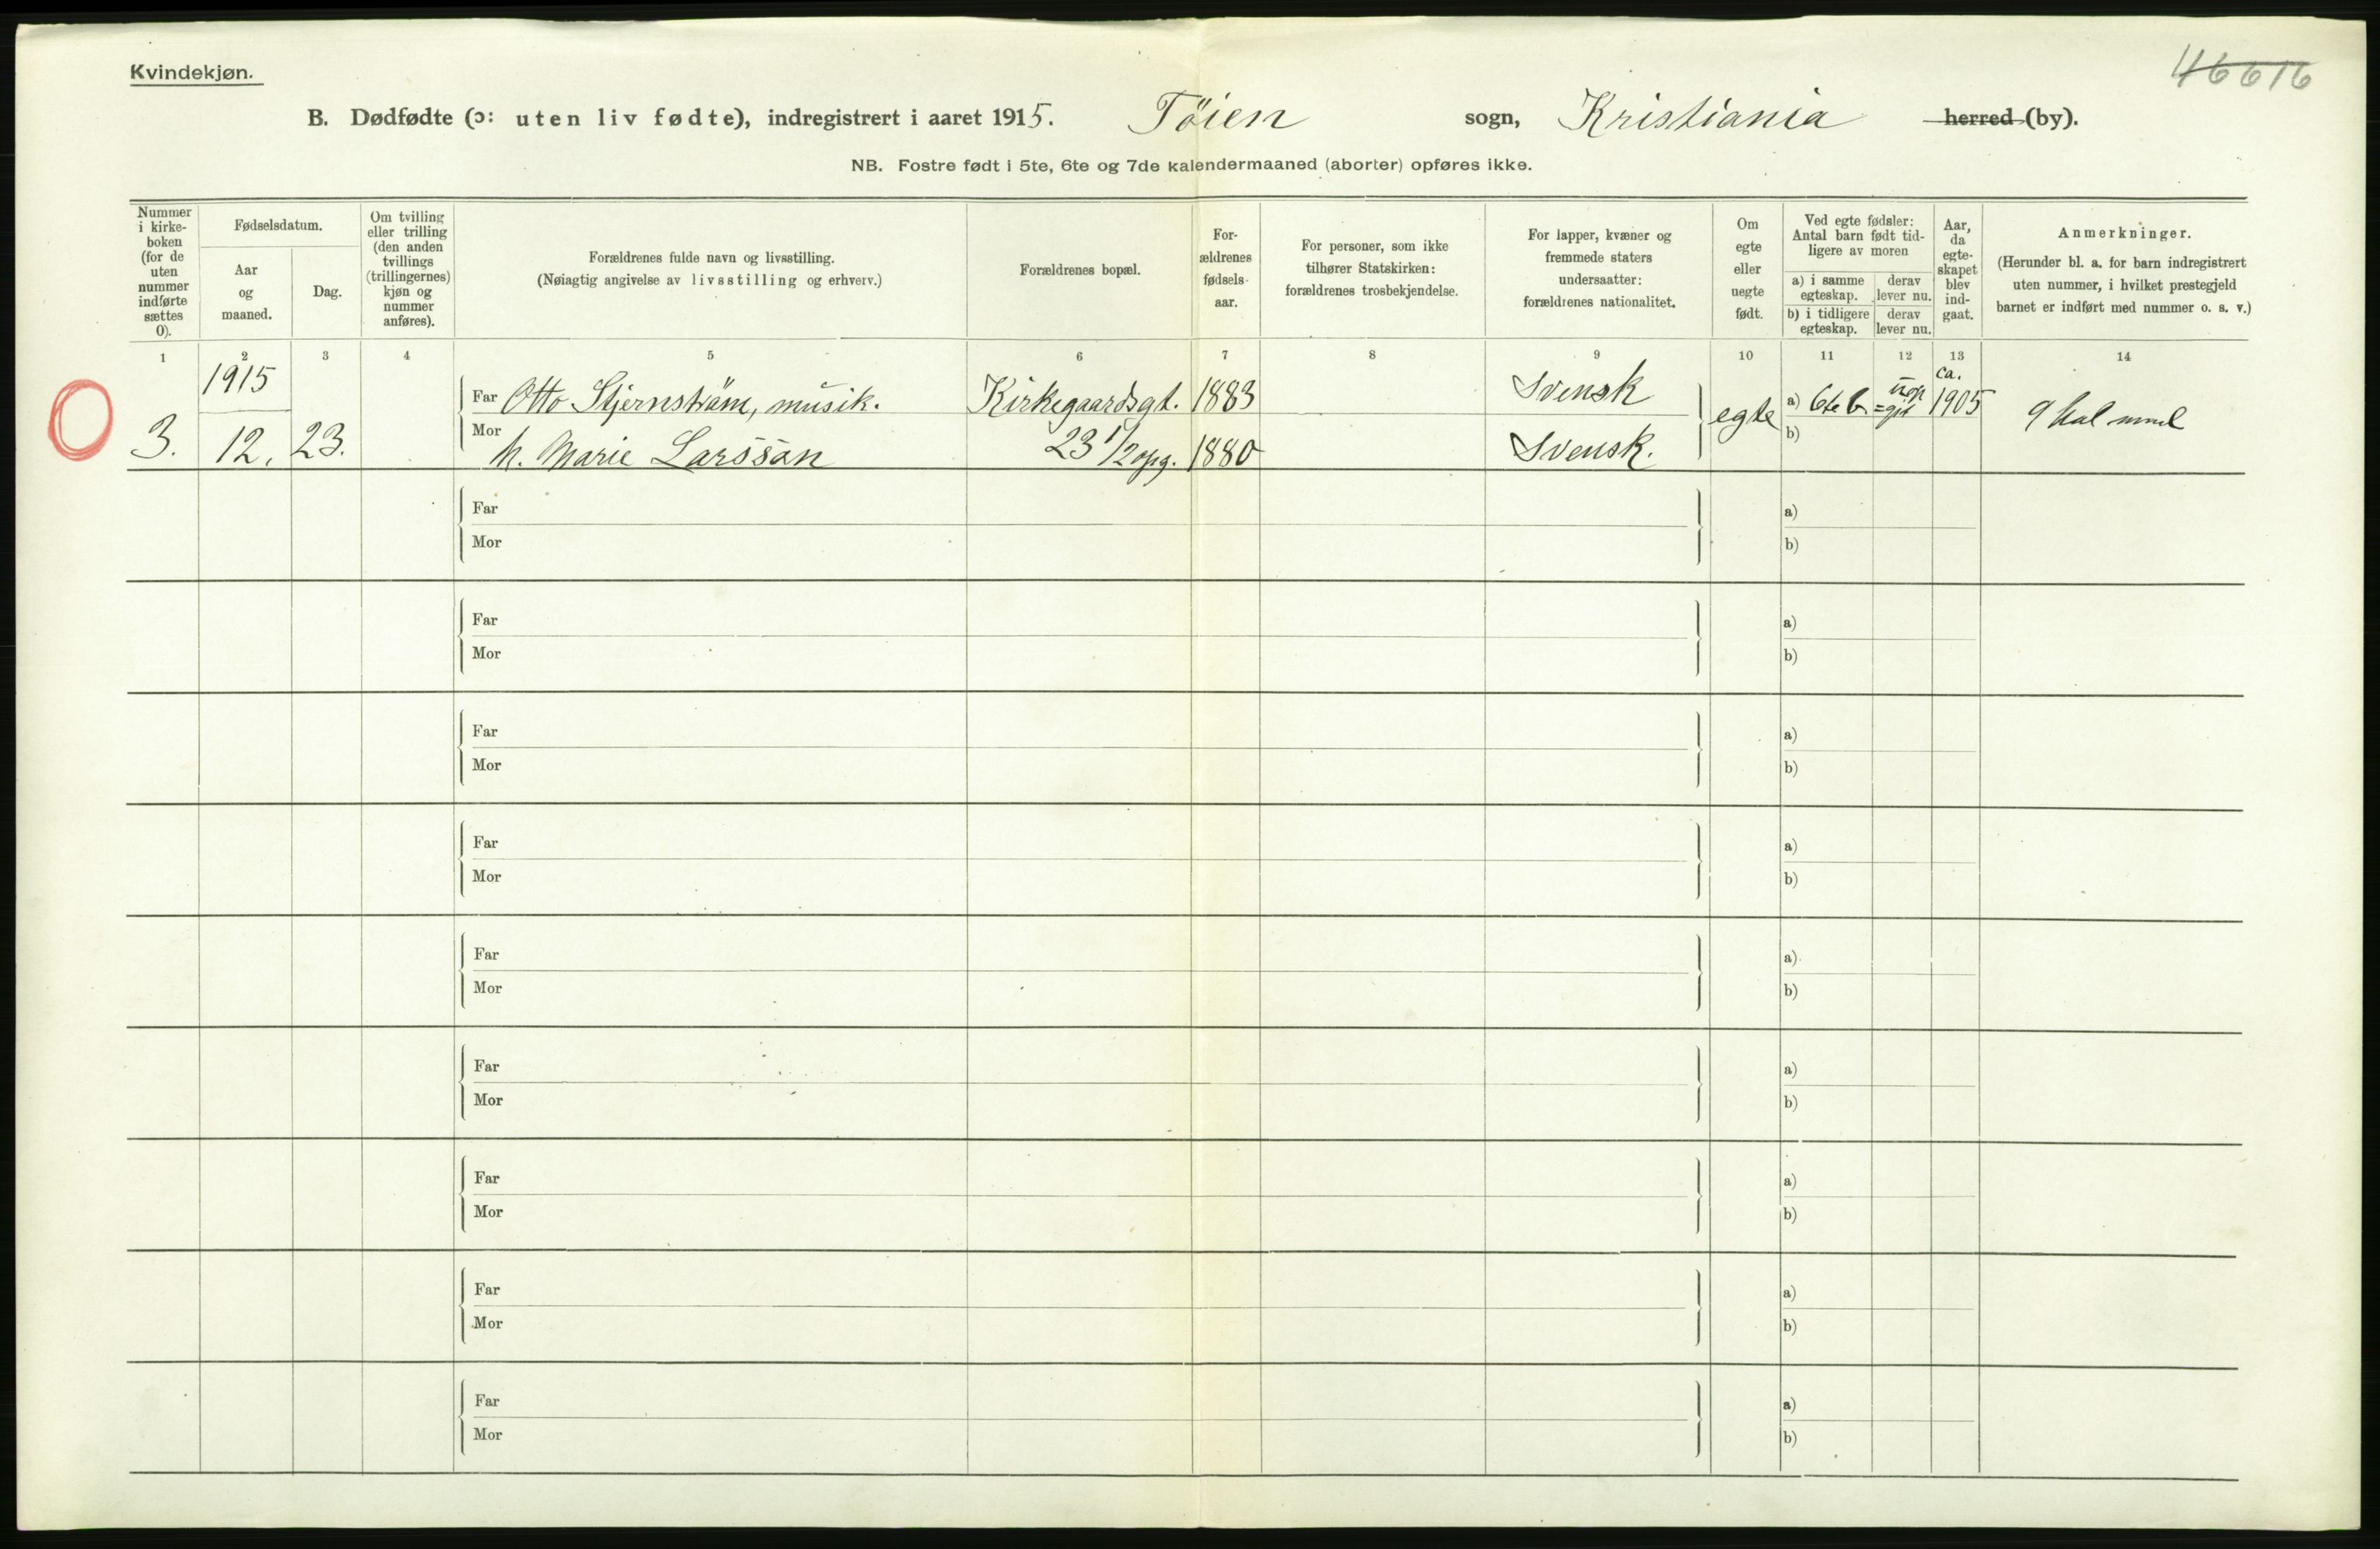 Kvindekjøn.
46616
B. Dødfødte (ɔ: uten liv fødte), indregistrert i aaret 1915. Tøien sogn, Kristiania herred (by).
NB. Fostre født i 5te, 6te og 7de kalendermaaned (aborter) opføres ikke.
Nummer i kirke-boken (for de uten nummer indførte sættes 0).
Fødselsdatum.
Aar og maaned.
Dag.
Om tvilling eller trilling (den anden tvillings (trillingernes) kjøn og nummer anføres).
Forældrenes fulde navn og livsstilling.
(Nøiagtig angivelse av livsstilling og erhverv.)
Forældrenes bopæl.
For-ældrenes fødsels-aar.
For personer, som ikke tilhører Statskirken: forældrenes trosbekjendelse.
For lapper, kvæner og fremmede staters undersaatter: forældrenes nationalitet.
Om egte eller uegte født.
Ved egte fødsler: Antal barn født tid-ligere av moren
a) i samme egteskap.
derav lever nu.
b) i tidligere egteskap.
derav lever nu.
Aar, da egte-skapet blev ind-gaat.
Anmerkninger.
(Herunder bl. a. for barn indregistrert uten nummer, i hvilket prestegjeld barnet er indført med nummer o. s. v.)
1 2 3 4 5 6 7 8 9 10 11 12 13 14
1915 ca.
Far Otto Stjernström, musik. Kirkegaardsgt. 1883 Svensk egte a) 6te b. 1905
3. 12. 23. Mor h. Marie Larssån 23 1/2 opg. 1880 Svensk. b) 9
Far a)
Mor b)
Far a)
Mor b)
Far a)
Mor b)
Far a)
Mor b)
Far a)
Mor b)
Far a)
Mor b)
Far a)
Mor b)
Far a)
Mor b)
Far a)
Mor b)